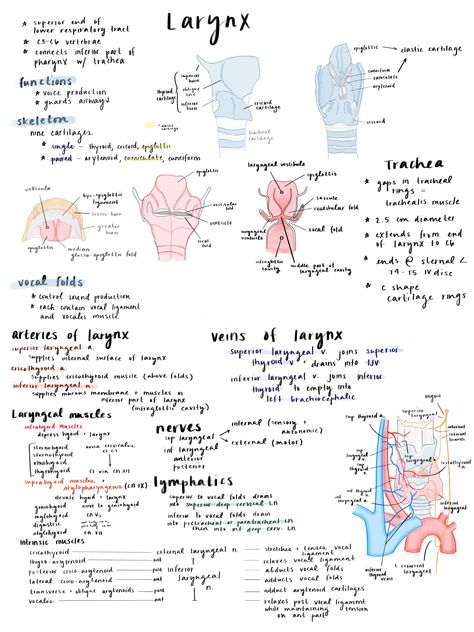 Larynx
* superior end of
lower respiratory tract
* C3-C6 vertebrae
* connects inferior part of
pharynx w/ trachea
functions
* voice production
* guards airways
skeleton
nine cartilages
* single - thyroid, cricoid, epiglottis
* paired - arytenoid, corniculate, cuneiform
elastic cartilage
superior horn
thyroid cartilage
oblique line
inferior horn
cricoid cartilage
tracheal cartilage
epiglottis
elastic cartilage
cuneiform
corniculate
arytenoid
cricoid
vallecula
hyo-epiglottic ligament
lesser horn
greater horn
epiglottis
median glosso-epiglottic fold
epiglottis
vestibular fold
ventricle
vocal fold
laryngeal vestibule
epiglottis
saccule
vestibular fold
vocal fold
laryngeal ventricle
infraglottic cavity
middle part of laryngeal cavity
Trachea
* gaps in tracheal
rings =
trachealis muscle
* 2.5 cm diameter
* extends from end
of larynx to C6
* ends @ sternal ∠
T4-T5 IV disc
* C shape
cartilage rings
vocal folds
* control sound production
* each contain vocal ligament
and vocalis muscle
arteries of larynx
superior laryngeal a.
supplies internal surface of larynx
cricothyroid a.
supplies cricothyroid muscle (above folds)
inferior laryngeal a.
supplies mucous membrane + muscles in
inferior part of larynx
(infraglottic cavity)
veins of larynx
superior laryngeal v. joins superior
thyroid v. + drains into IJV
inferior laryngeal v. joins inferior
thyroid to empty into
left brachiocephalic
Laryngeal muscles
infrahyoid muscles
depress hyoid + larynx
sternohyoid
sternothyroid
omohyoid
thyrohyoid
ansa cervicalis
C1 via CN XII
suprahyoid muscles +
stylopharyngeus (CN IX)
elevate hyoid + larynx
geniohyoid
mylohyoid
digastric
stylohyoid
nerves
sup laryngeal
inf laryngeal
anterior
posterior
internal (sensory +
autonomic)
external (motor)
lymphatics
superior to vocal folds drains
into superior deep cervical LN
inferior to vocal folds drain
into pretracheal or paratracheal LN
then into inf deep cerv. LN
Intrinsic muscles
cricothyroid external laryngeal n. stretches + tenses vocal ligament
thyro-arytenoid relaxes vocal ligament
posterior crico-arytenoid abducts vocal folds
lateral crico-arytenoid adducts vocal folds
transverse + oblique arytenoids adduct arytenoid cartilages
vocalis relaxes post vocal ligament
while maintaining tension
on ant part
inferior laryngeal n.
sup thyroid a.
hyoid
superior laryngeal n.
sup laryngeal a.
inf laryngeal a.
inferior thyroid v.
L recurrent laryngeal